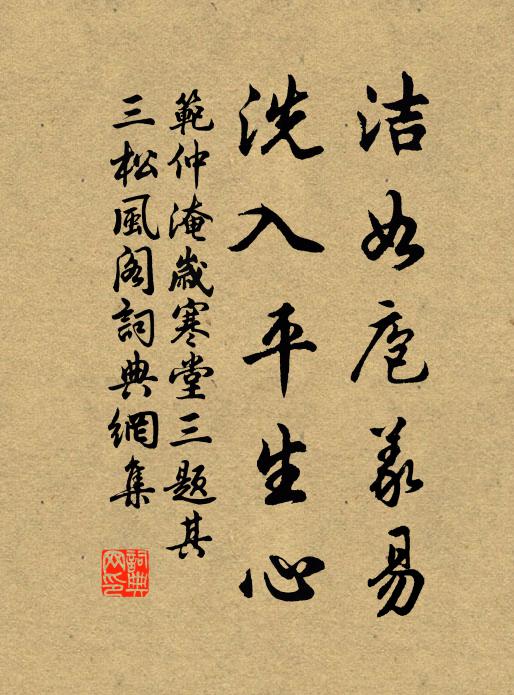 洁如庖羲易
洗入平生心
範仲淹歲寒堂三題其
三松風阁詞典網集
詞典
网印